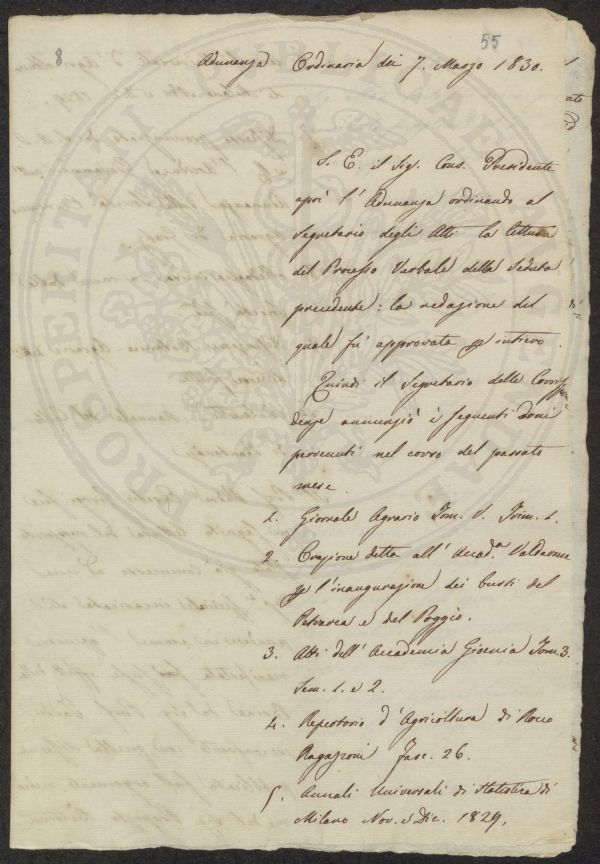 8
55
Adunanza Ordinaria dei 7. Marzo 1830.
S. E. il Sig. Cons. Presidente
aprì l'Adunanza ordinando al
Segretario degli Atti la lettura
del Processo Verbale della Seduta
precedente: la redazione del
quale fù approvata p intiero.
Quindi il Segretario delle Corrisp
denze annunziò i seguenti doni
pervenuti nel corso del passato
mese.
1. Giornale Agrario Tom. V. Trim. 1.
2. Orazione detta all'Accad.a Valdarnese
p l'inaugurazione dei busti del
Petrarca e del Poggio.
3. Atti dell'Accademia Gioenia Tom. 3.
Sem. 1. e 2.
4. Repertorio d'Agricoltura di Rocco
Ragazzoni Fasc. 26.
5. Annali Universali di Statistica di
Milano Nov. e Dic. 1829.
PROSPERITATI PUBLICAE AUGENDAE